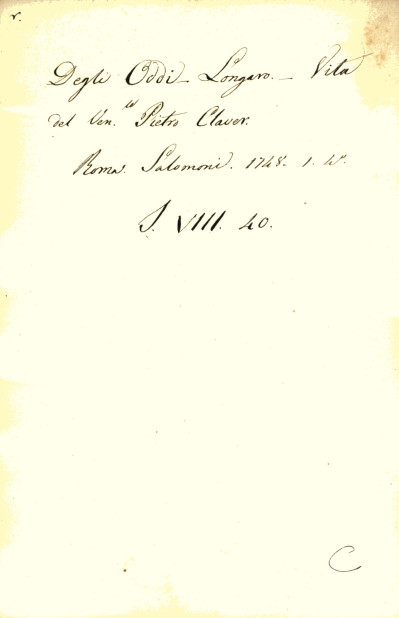 r.
Degli Oddi - Longaro. - Vita
del Ven.le Pietro Claver.
Roma. Salomoni. 1748. 1. 4º
S. VIII. 40.
C